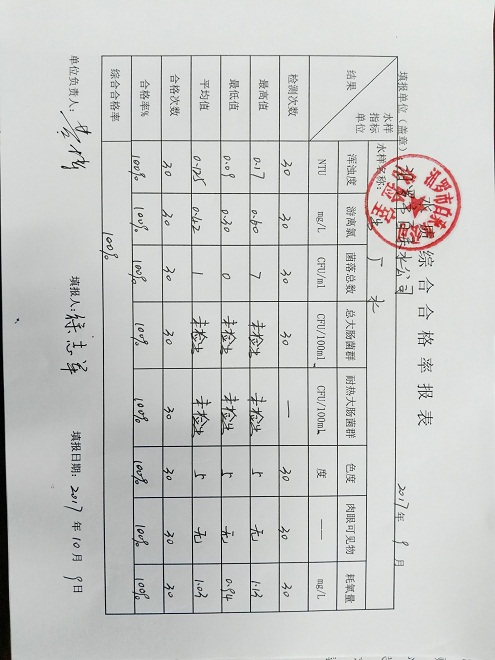 水质综合合格率报表
2017年 9 月
填报单位（盖章）: 汨罗市自来水公司
水样名称: 出厂水
水样 指标 单位 结果 浑浊度 游离氯 菌落总数 总大肠菌群 耐热大肠菌群 色度 肉眼可见物 耗氧量
NTU mg/L CFU/ml CFU/100mL CFU/100mL 度 —— mg/L
检测次数 30 30 30 30 — 30 30 30
最高值 0.17 0.60 7 未检出 未检出 5 无 1.13
最低值 0.09 0.30 0 未检出 未检出 5 无 0.94
平均值 0.125 0.42 1 未检出 未检出 5 无 1.03
合格次数 30 30 30 30 30 30 30 30
合格率% 100% 100% 100% 100% 100% 100% 100% 100%
综合合格率 100%
单位负责人: 填报人: 填报日期: 2017 年 10 月 9 日